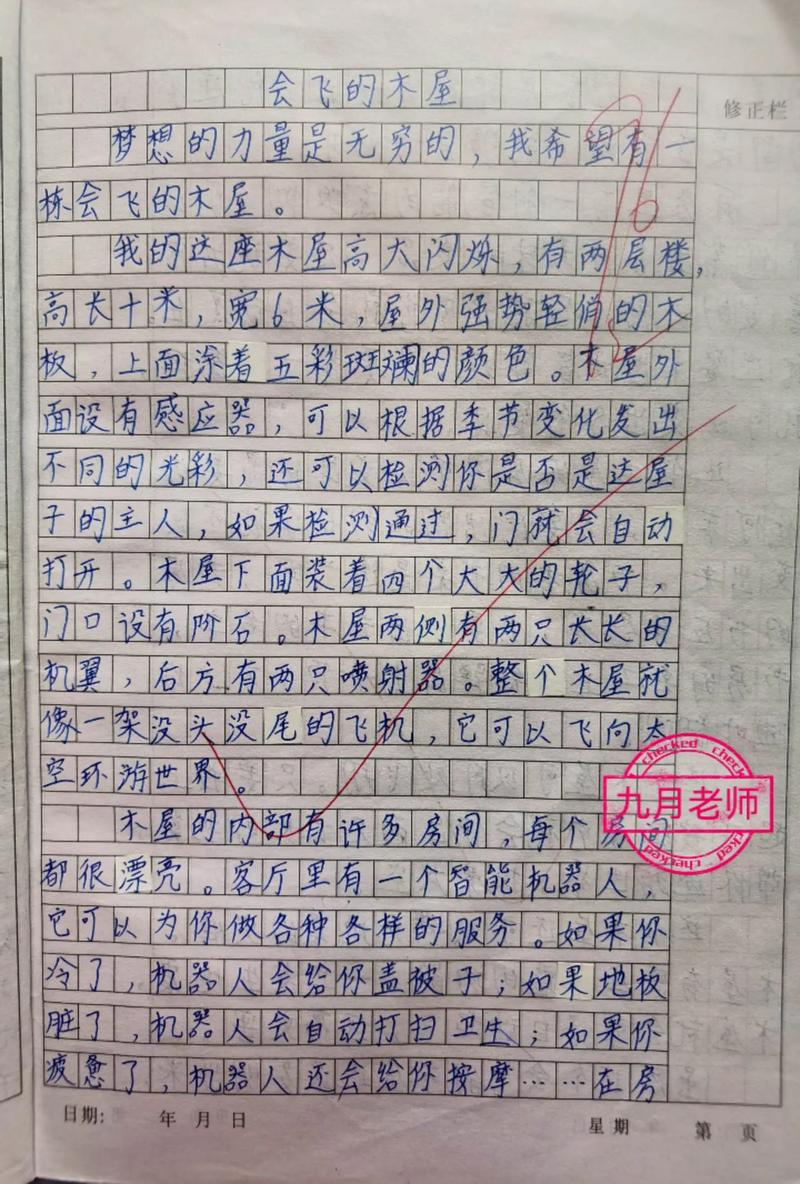 会飞的木屋
修正栏
梦想的力量是无穷的，我希望有一
栋会飞的木屋。
我的这座木屋高大闪烁，有两层楼，
高长十米，宽6米，屋外强势轻俏的木
板，上面涂着五彩斑斓的颜色。木屋外
面设有感应器，可以根据季节变化发出
不同的光彩，还可以检测你是否是这屋
子的主人，如果检测通过，门就会自动
打开。木屋下面装着四个大大的轮子，
门口设有阶石。木屋两侧有两只长长的
机翼，后方有两只喷射器。整个木屋就
像一架没头没尾的飞机，它可以飞向太
空环游世界。
checked checked
九月老师
checked checked
木屋的内部有许多房间，每个房间
都很漂亮。客厅里有一个智能机器人，
它可以为你做各种各样的服务。如果你
冷了，机器人会给你盖被子；如果地板
脏了，机器人会自动打扫卫生；如果你
疲惫了，机器人还会给你按摩……在房
日期： 年 月 日 星期 第 页